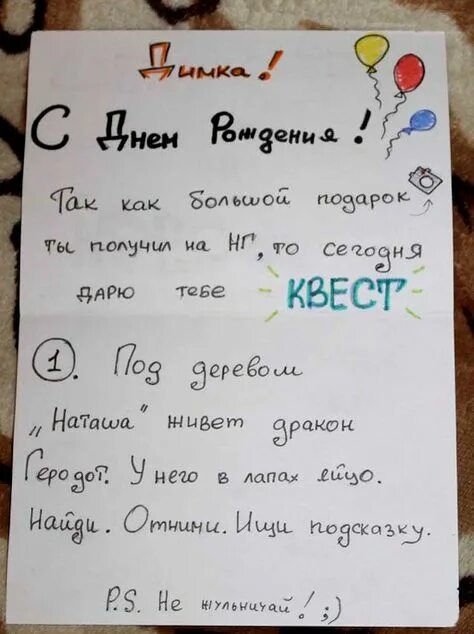 Димка!
С Днем Рождения!
Так как большой подарок
ты получил на НГ, то сегодня
дарю тебе КВЕСТ
1. Под деревом
„Наташа" живет дракон
Геродот. У него в лапах яйцо.
Найди. Отними. Ищи подсказку.
P.S. Не жульничай! ;)